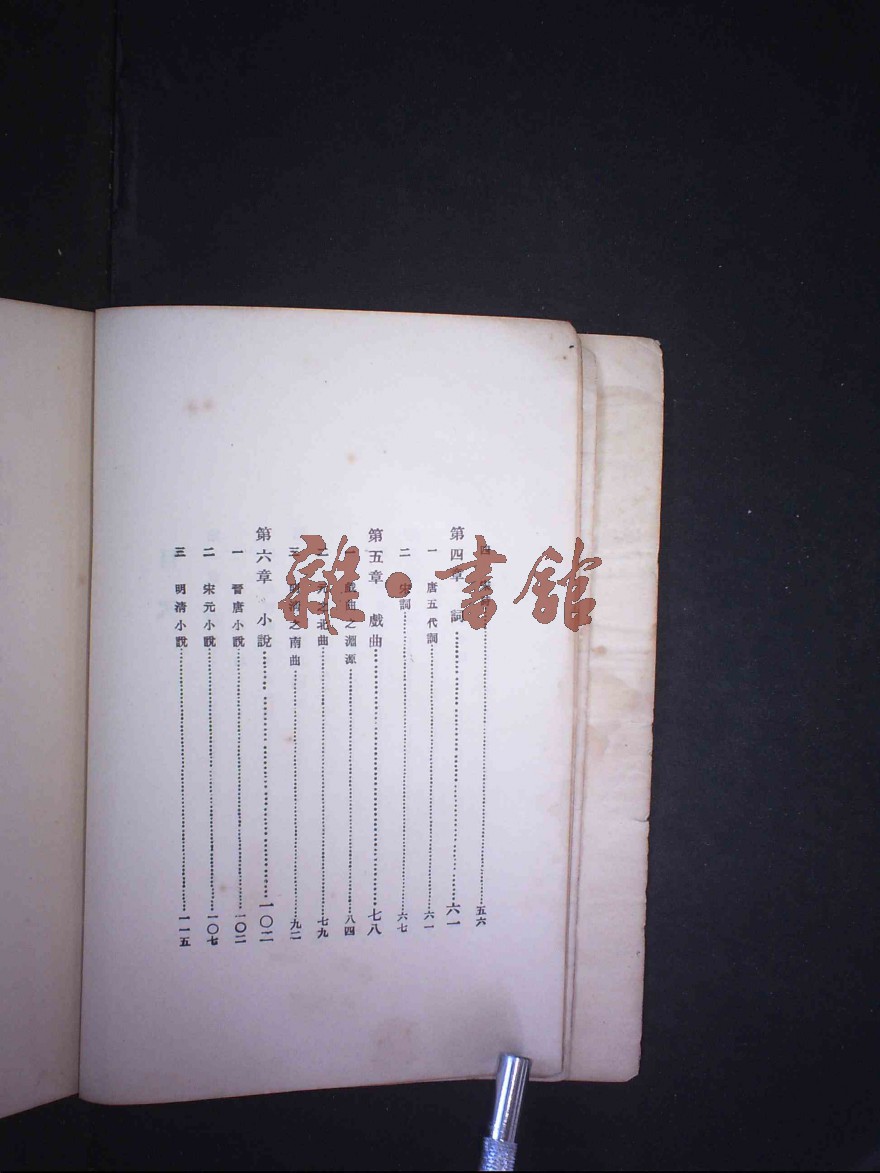 四⋯⋯五六
第四章 詞⋯⋯六一
一 唐五代詞⋯⋯六一
二 宋詞⋯⋯六七
第五章 戲曲⋯⋯七八
一 戲曲之淵源⋯⋯八四
二 元之北曲⋯⋯七九
三 明清之南曲⋯⋯九二
第六章 小說⋯⋯一〇二
一 晉唐小說⋯⋯一〇二
二 宋元小說⋯⋯一〇七
三 明清小說⋯⋯一一五
雜·書館